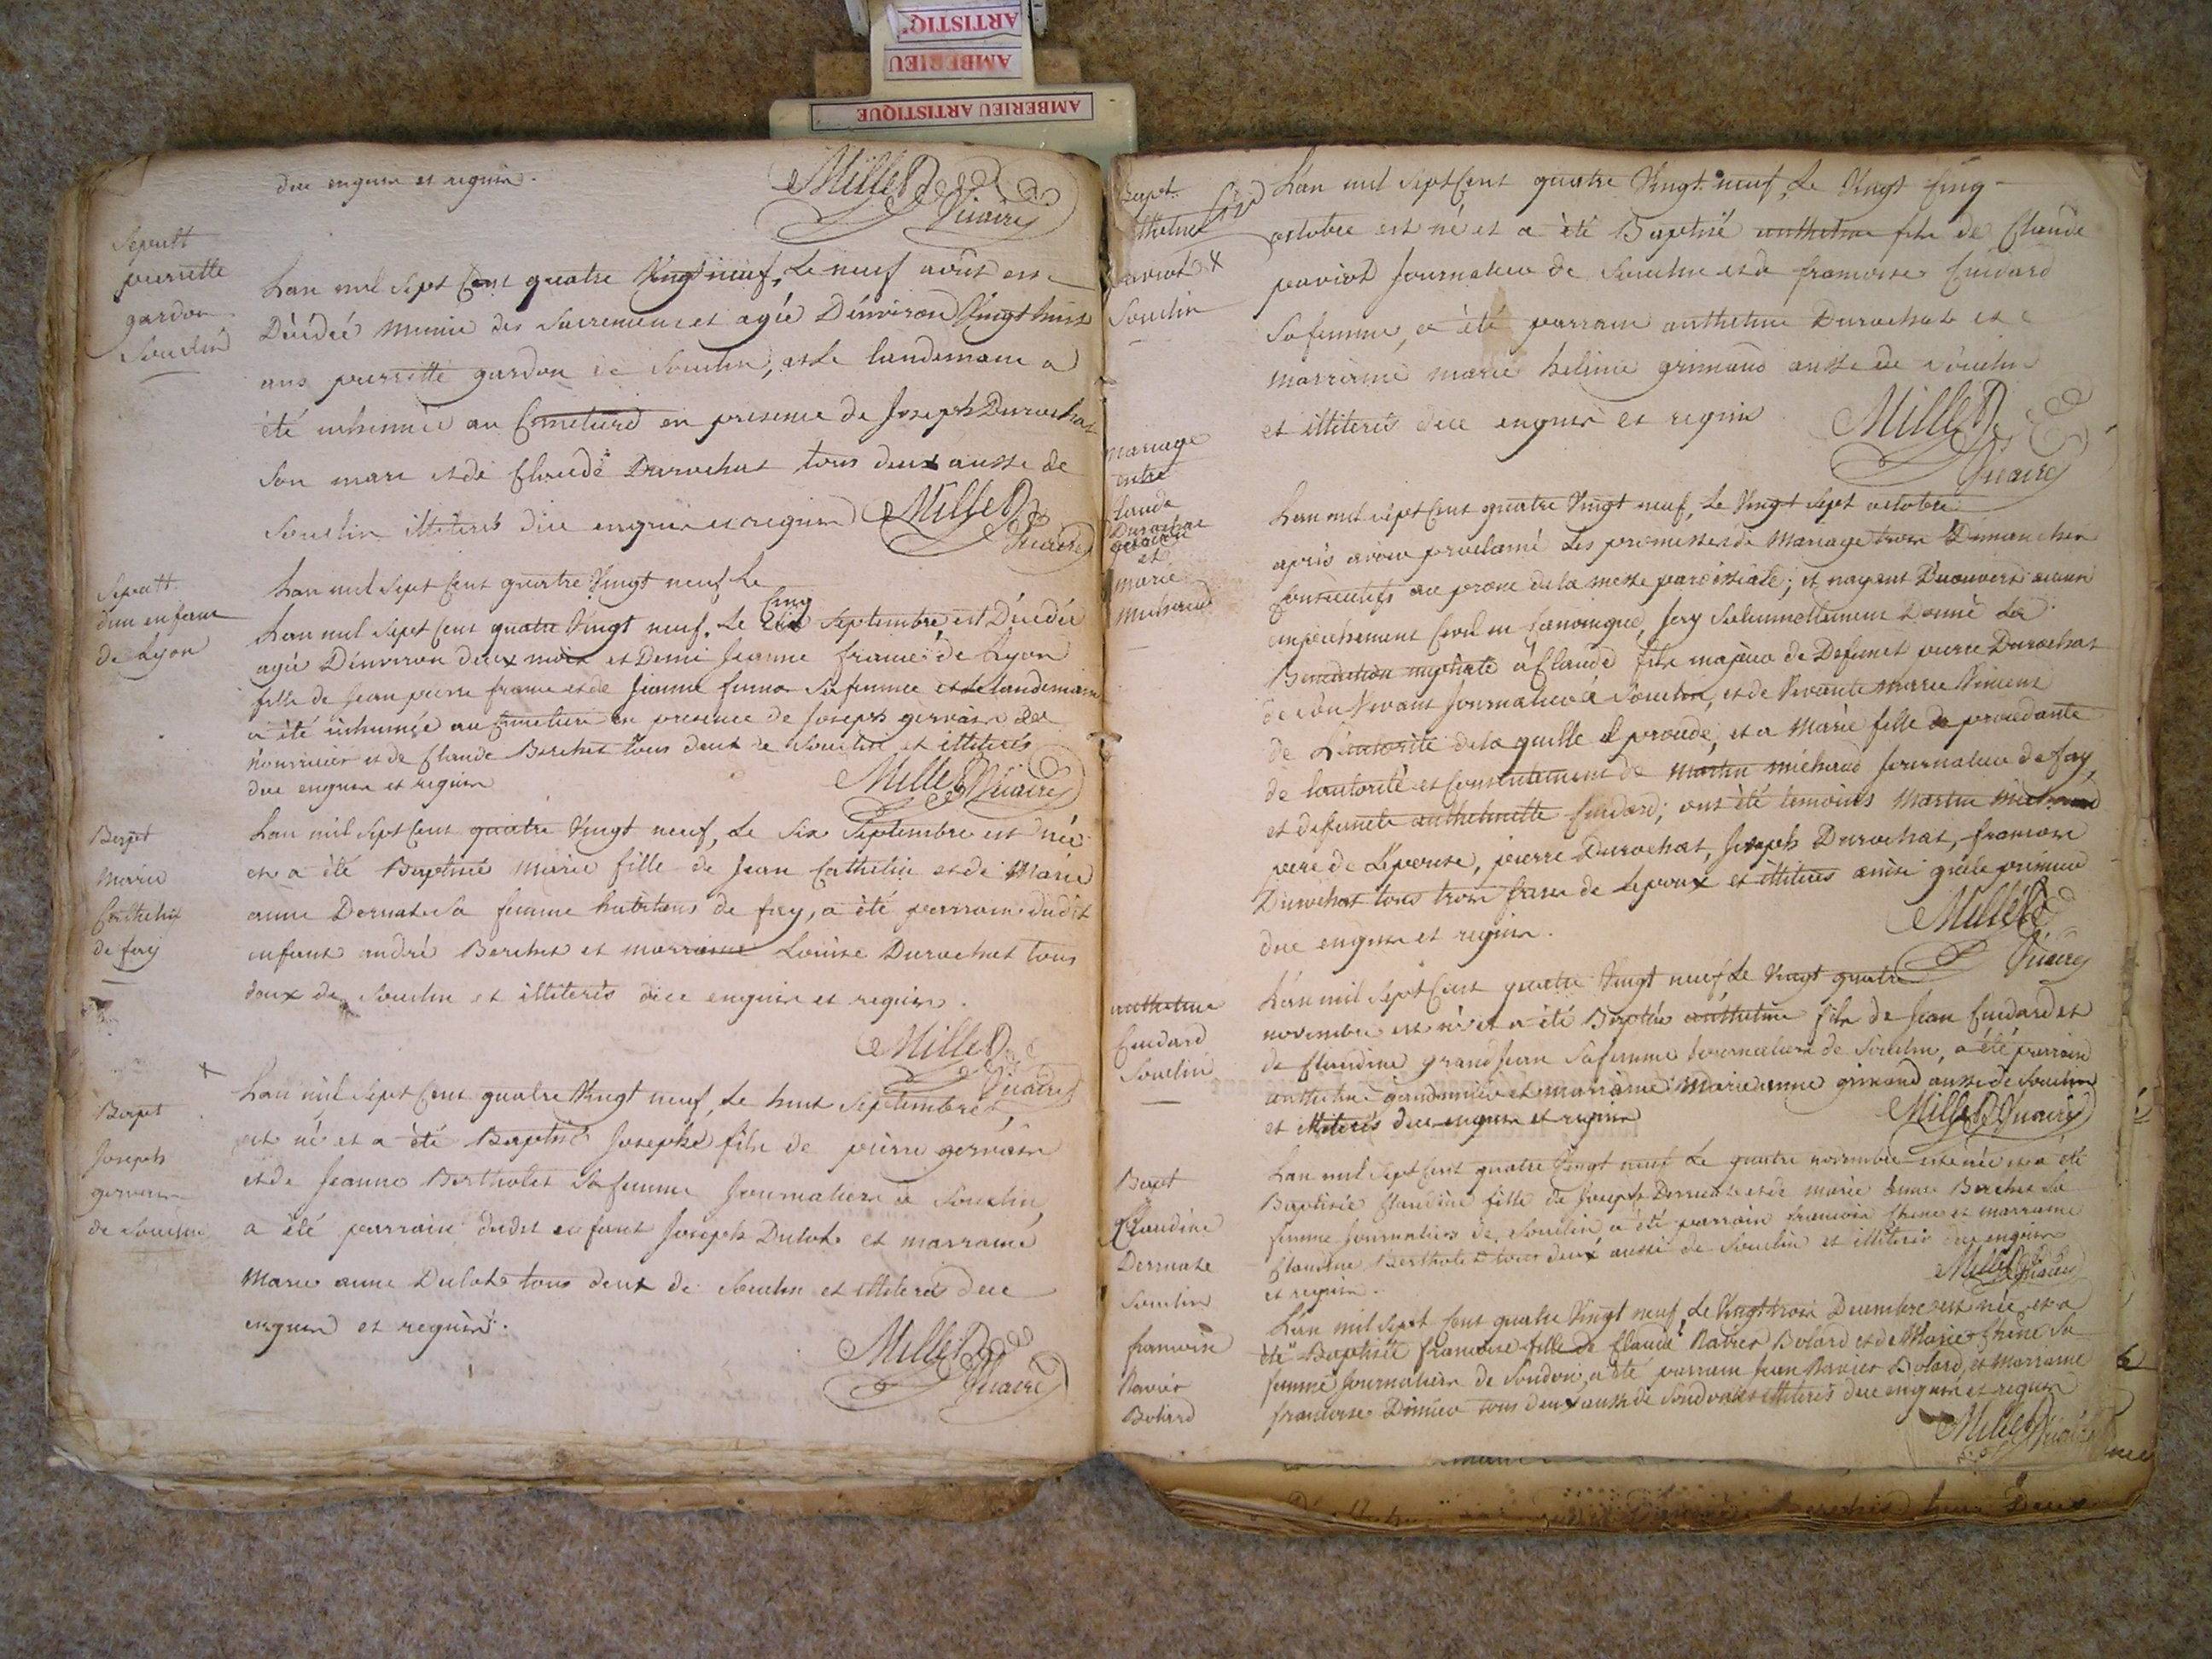 ARTISTIQ
AMBERIEU
AMBERIEU ARTISTIQUE
due enquis et requis.
Millet
Vicaire
Sepult
pierrette
gardon
Souclin
Lan mil sept Cent quatre Vingt neuf, Le neuf août est
Décédée munie des Sacremens et agée Dénviron Vingt huit
ans pierrette gardon de Souclin, et le landemain a
été inhumée au Cimetiere en presence de Joseph Durochat
Son mari et de Claude Durochat tous deux aussi de
Souclin illiterés due enquis et requis Millet
Vicaire
Sepult.
dun enfant
de Lyon
Lan mil sept Cent quatre Vingt neuf Le
Cinq
Lan mil sept Cent quatre Vingt neuf. Le Septembre est Décédée
agée Dénviron deux mois et Demi Jeanne france de Lyon
fille de Jean pierre france et de Jeanne Sa femme et le landemain
a été inhumée au Cimetiere en presence de Joseph gervais
nourricier et de Claude Berchet tous deux de Souclin et illiterés
due enquis et requis Millet Vicaire
Bapt
Marie
Cathelin
de fay
Lan mil sept Cent quatre Vingt neuf, Le Six Septembre est née
et a été Baptisée Marie fille de Jean Cathelin et de Marie
anne Dernat Sa femme habitans de fay, a été parrain dudit
enfant andré Berchet et marraine Louise Durochat tous
deux de Souclin et illiterés due enquis et requis.
Millet
Vicaire
Bapt
Joseph
gervais
de Souclin
Lan mil sept Cent quatre Vingt neuf, Le huit Septembre
est né et a été Baptisé Joseph fils de pierre gervais
et de Jeanne Bertholet Sa femme Journaliers à Souclin
a été parrain dudit enfant Joseph Dulot et marraine
Marie anne Dulot tous deux de Souclin et illiterés due
enquis et requis.
Millet
Vicaire
Bapt
anthelme
paviot x
Souclin
Lan mil sept Cent quatre Vingt neuf, Le Vingt Cinq
octobre est né et a été Baptisé anthelme fils de Claude
paviot Journalier de Souclin et de francoise Cuidard
Sa femme, a été parrain anthelme Durochat et
marraine marie heline grimand aussi de Souclin
et illiterés due enquis et requis Millet
Vicaire
mariage
entre
Claude
Durochat
et
marie
michaud
Lan mil sept Cent quatre Vingt neuf, Le Vingt sept octobre
après avoir proclamé Les promesses de Mariage trois Dimanches
Consecutifs au prone de la messe paroissiale; et nayant Decouvert aucun
empechement Civil ni Canonique, Jay Solemnellement Donné La
Benediction nuptiale à Claude fils majeur de Defunct pierre Durochat
de son Vivant Journalier à Souclin, et de Vivante marie Vincent
de L'autorité de la quelle il procede, et a Marie fille procedante
de lautorité et Consentement de Martin michaud Journalier de fay
et defuncte anthelmette Cuidard; ont été temoins Martin michaud
pere de Lepouse, pierre Durochat, Joseph Durochat, francois
Durochat tous trois freres de Lepoux et illiterés ainsi que le premier
due enquis et requis. Millet
Vicaire
anthelme
Cuidard
Souclin
Lan mil sept Cent quatre Vingt neuf Le Vingt quatre
novembre est né et a été Baptisé anthelme fils de Jean Cuidard et
de Claudine grand Jean Sa femme Journaliers de Souclin, a été parrain
anthelme et marraine Marie anne grimand aussi de Souclin
et illiterés due enquis et requis Millet Vicaire
Bapt
Claudine
Dernat
Souclin
Lan mil sept Cent quatre Vingt neuf Le quatre novembre est née et a été
Baptisée Claudine fille de Joseph Dernat et de marie anne Berchet Sa
femme Journaliers de Souclin a été parrain francois Chêne et marraine
Claudine Bertholet tous deux aussi de Souclin et illiterés due enquis
et requis. Millet Vicaire
francoise
Navier
Bolard
Lan mil sept Cent quatre Vingt neuf, Le Vingt trois Decembre est née et a
été Baptisée francoise fille de Claude Navier Bolard et de Marie Chêne Sa
femme Journaliers de Soudon, a été parrain Jean Navier Bolard, et marraine
francoise tous deux aussi de Soudon et illiterés due enquis et requis
Millet Vicaire